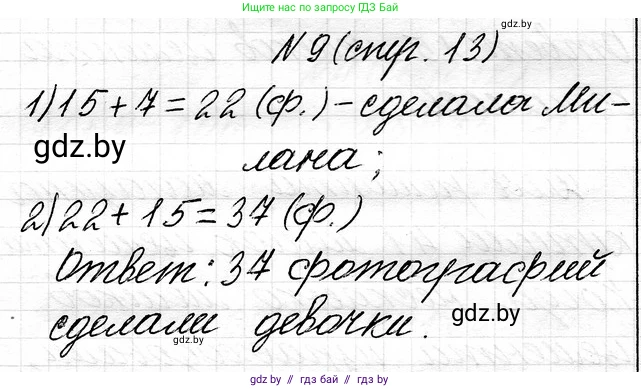 Ищите нас по запросу ГДЗ Бай
gdz.by
N 9 (стр. 13)
1) 15 + 7 = 22 (ф.) - сделала Ми-
gdz.by
лана;
2) 22 + 15 = 37 (ф.)
Ответ: 37 фотографий
сделали девочки. gdz.by
gdz.by
gdz by // гдз бай // gdz by